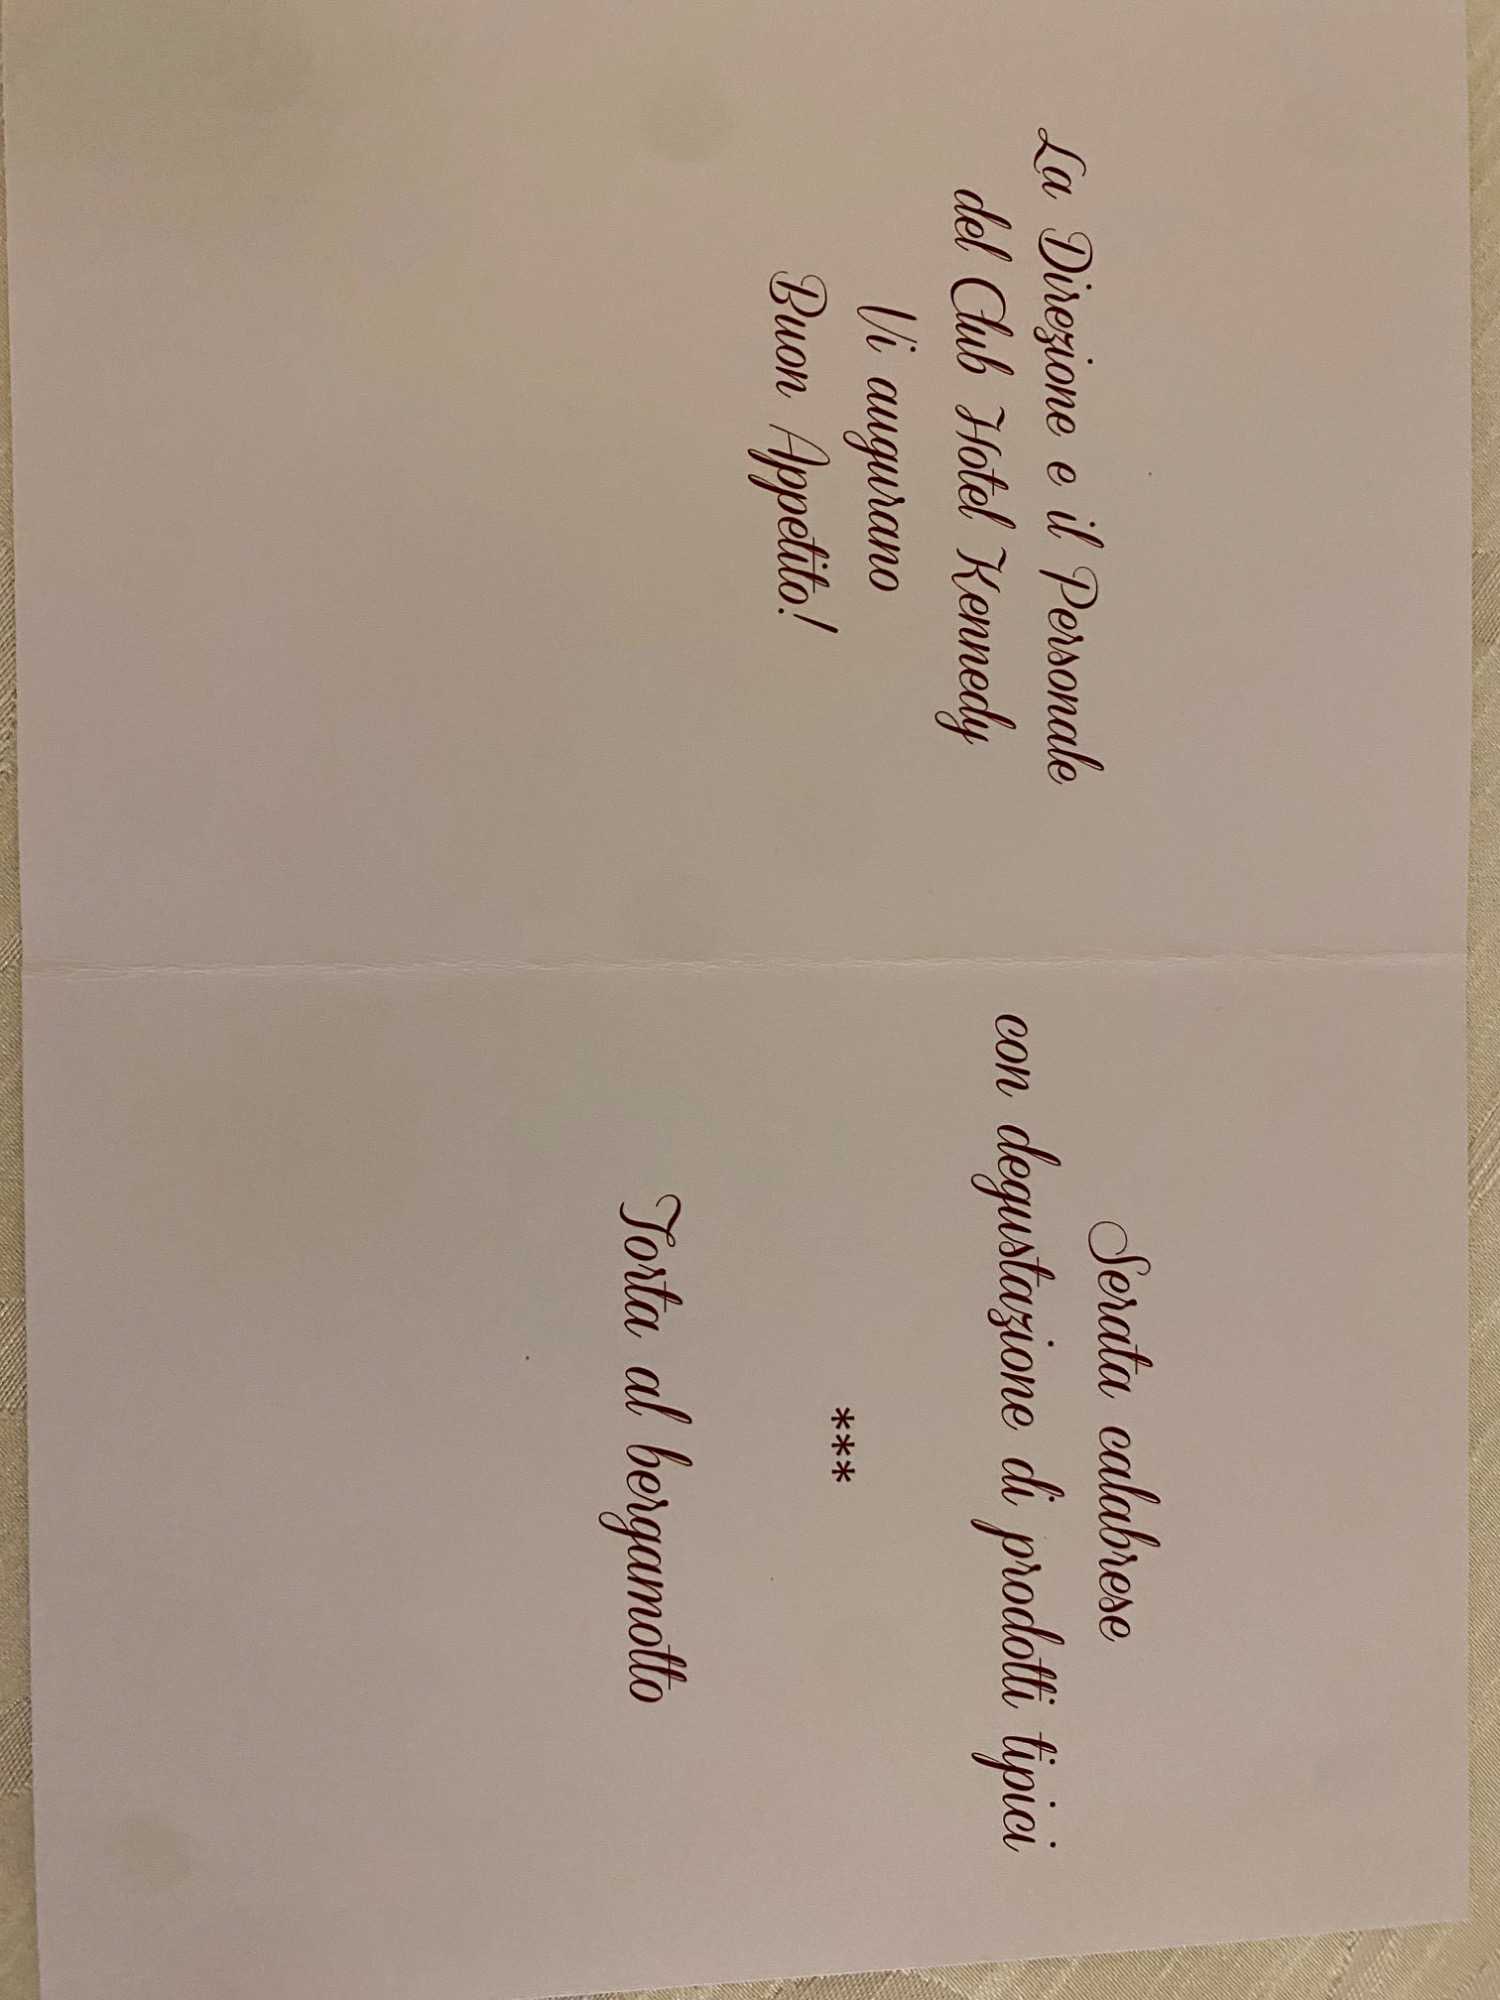 La Direzione e il Personale
del Club Hotel Kennedy
Vi augurano
Buon Appetito!
Serata calabrese
con degustazione di prodotti tipici
***
Torta al bergamotto